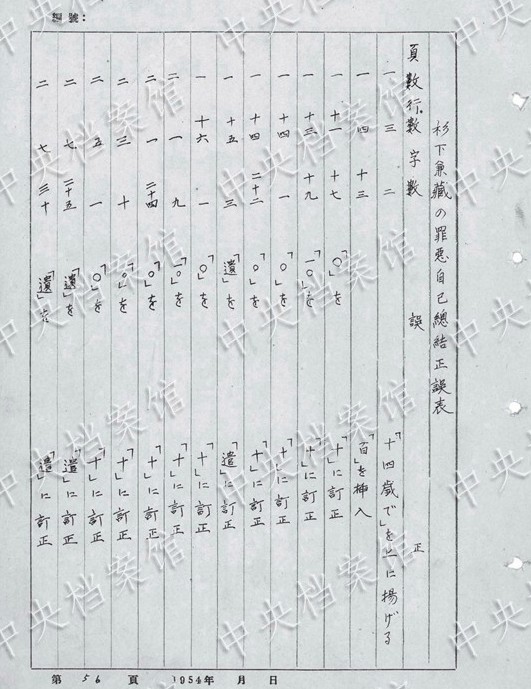 編號:
杉下兼藏の罪悪自己總結正誤表
頁数 行数 字数 誤 正
一 三 二 「十四歳で」を上に揚げる
一 四 十三 「百」を挿入
一 十一 十七 「〇」を 「十」に訂正
一 十三 十九 「一〇」を 「十」に訂正
一 十四 一 「〇」を 「十」に訂正
一 十四 二十二 「〇」を 「十」に訂正
一 十五 三 「遺」を 「遣」に訂正
一 十六 一 「〇」を 「十」に訂正
二 一 九 「一〇」を 「十」に訂正
二 一 二十四 「〇」を 「十」に訂正
二 三 十 「〇」を 「十」に訂正
二 五 一 「〇」を 「十」に訂正
二 七 二十五 「遺」を 「遣」に訂正
二 七 三十 「遺」を 「遣」に訂正
第 56 頁 1954年 月 日
中央档案馆